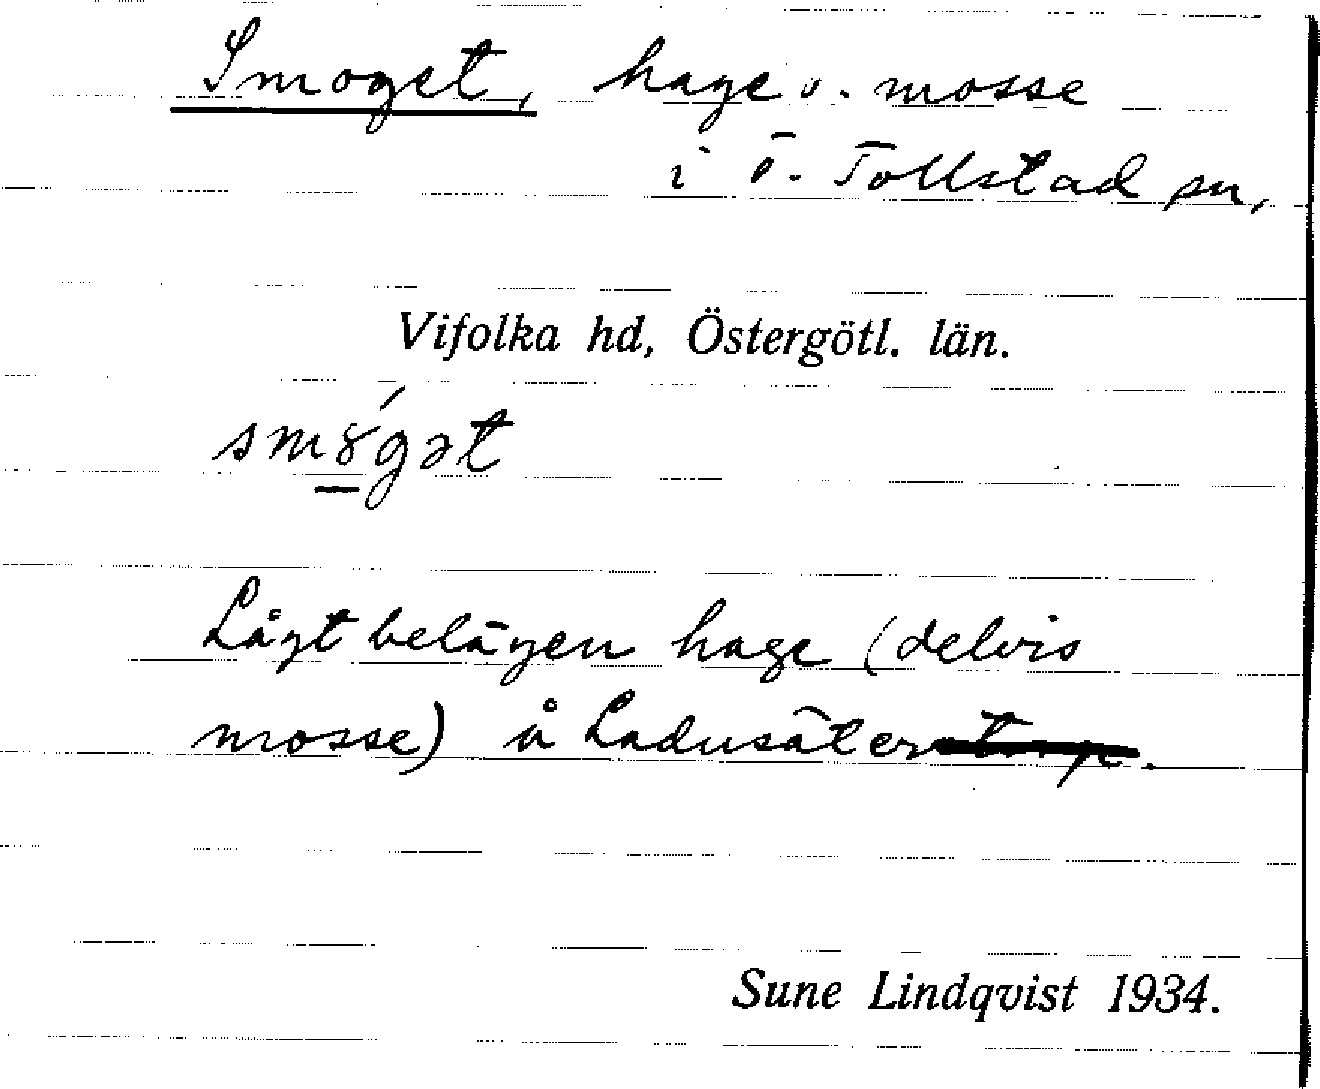 Smoget, hage o. mosse
i Ö. Tollstad sn,
Vifolka hd, Östergötl. län.
Lågt belägen hage (delvis
mosse) å Ladusäter.
Sune Lindqvist 1934.